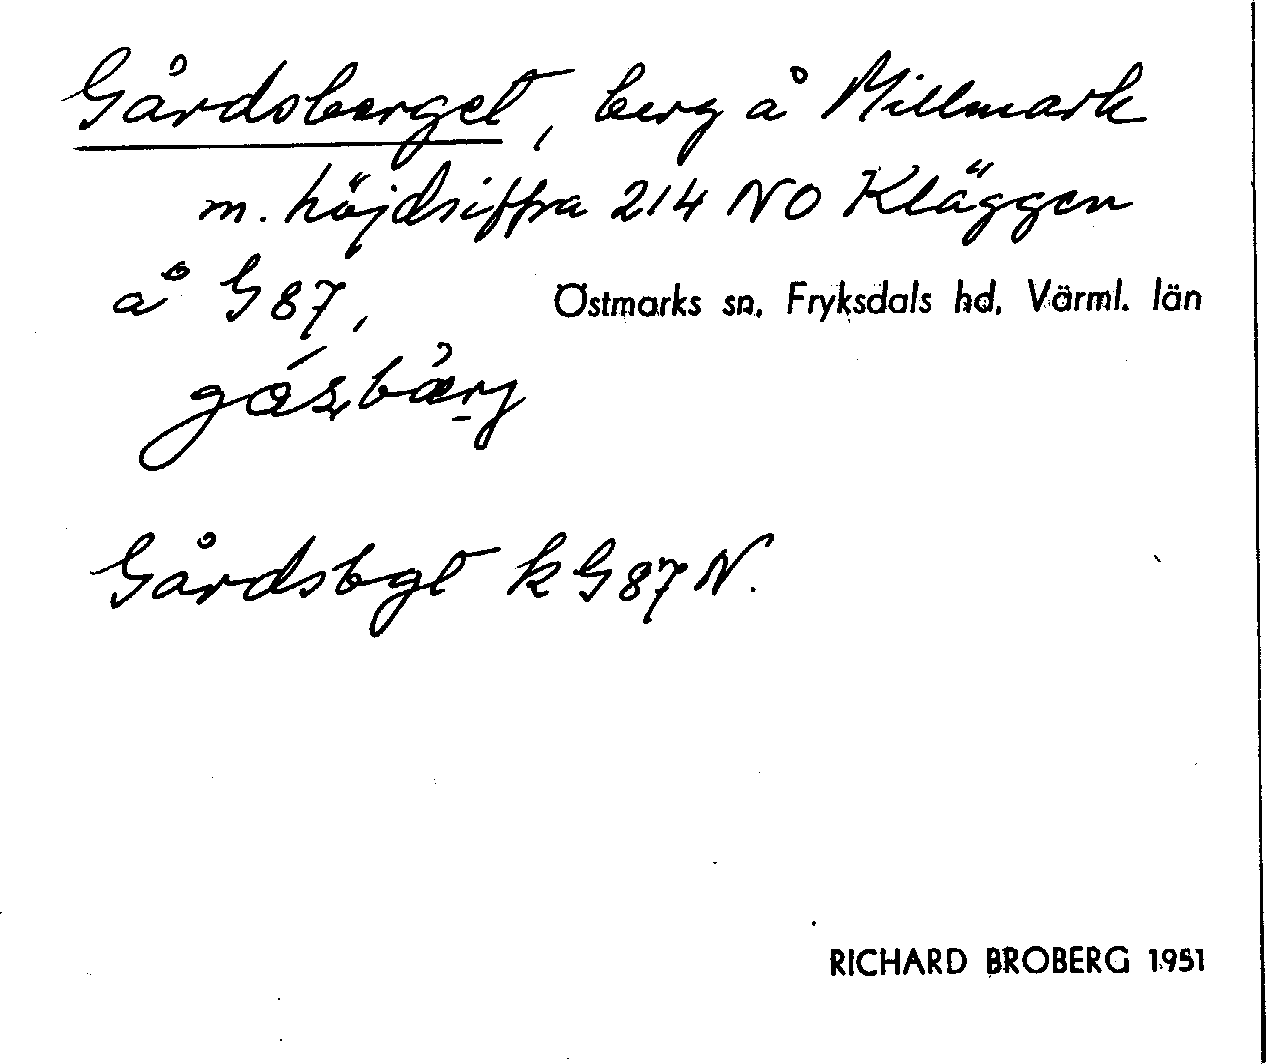 Gårdsberget, berg å Millmark
m. höjdsiffra 214 NO Kläggen
å G 87,
Östmarks sn. Fryksdals hd. Värml. län
Gårdsbgt k G 87 N.
RICHARD BROBERG 1951